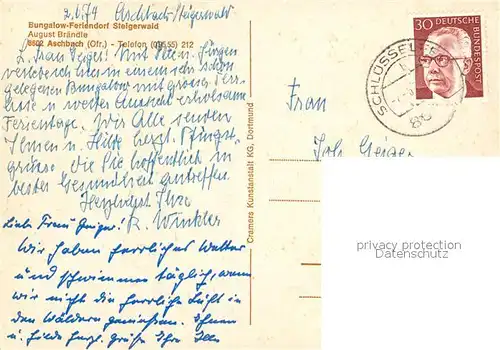 2.6.74 Aschbach/Steigerwald
Bungalow-Feriendorf Steigerwald
August Brändle
8602 Aschbach (Ofr.) - Telefon (09555) 212
L. Frau Geiger! Mit und Jürgen
verlebe ich hier in einem sehr schön
gelegenen Bungalow mit grosser Ter-
rasse u weiter Aussicht erholsame
Ferientage. Wir Alle senden
Ihnen u. Hilde herzl. Pfingst-
grüsse die Sie hoffentlich in
bester Gesundheit antreffen.
Herzlichst Ihre
R. Winkler
Liebe Frau Geiger!
Wir haben herrliches Wetter
und schwimmen täglich, wenn
wir nicht die herrliche Luft in
den Wäldern geniessen. Ihnen
u. Hilde herzl. Grüße Ihre
Cramers Kunstanstalt KG, Dortmund
30 DEUTSCHE BUNDESPOST
SCHLÜSSELFELD
86
Frau
Geiger
privacy protection
Datenschutz